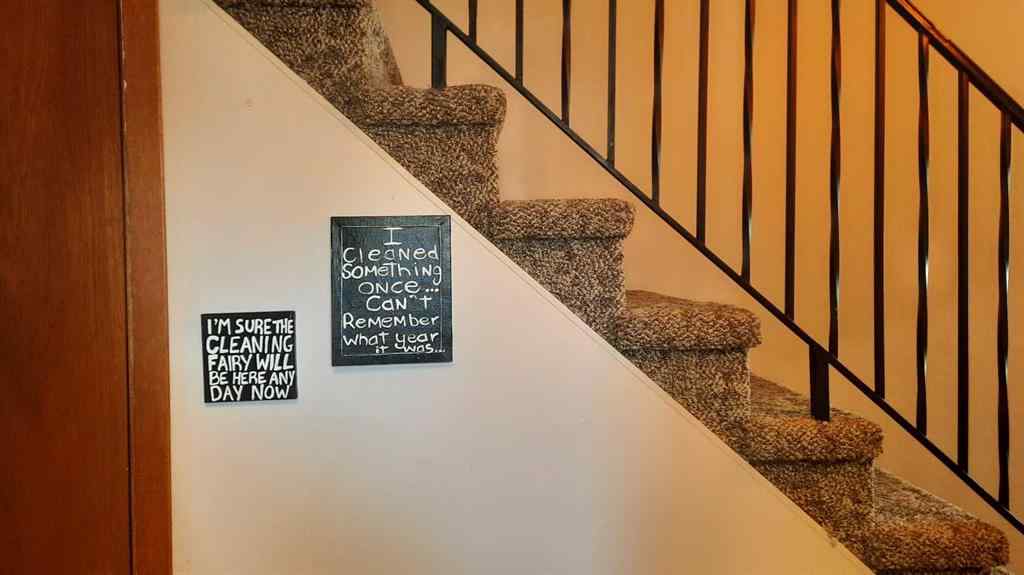 I'M SURE THE
CLEANING
FAIRY WILL
BE HERE ANY
DAY NOW
I
CLEANED
SOMEThING
ONCE...
CAN'T
REMEMBER
WhAT YEAR
iT WAS...